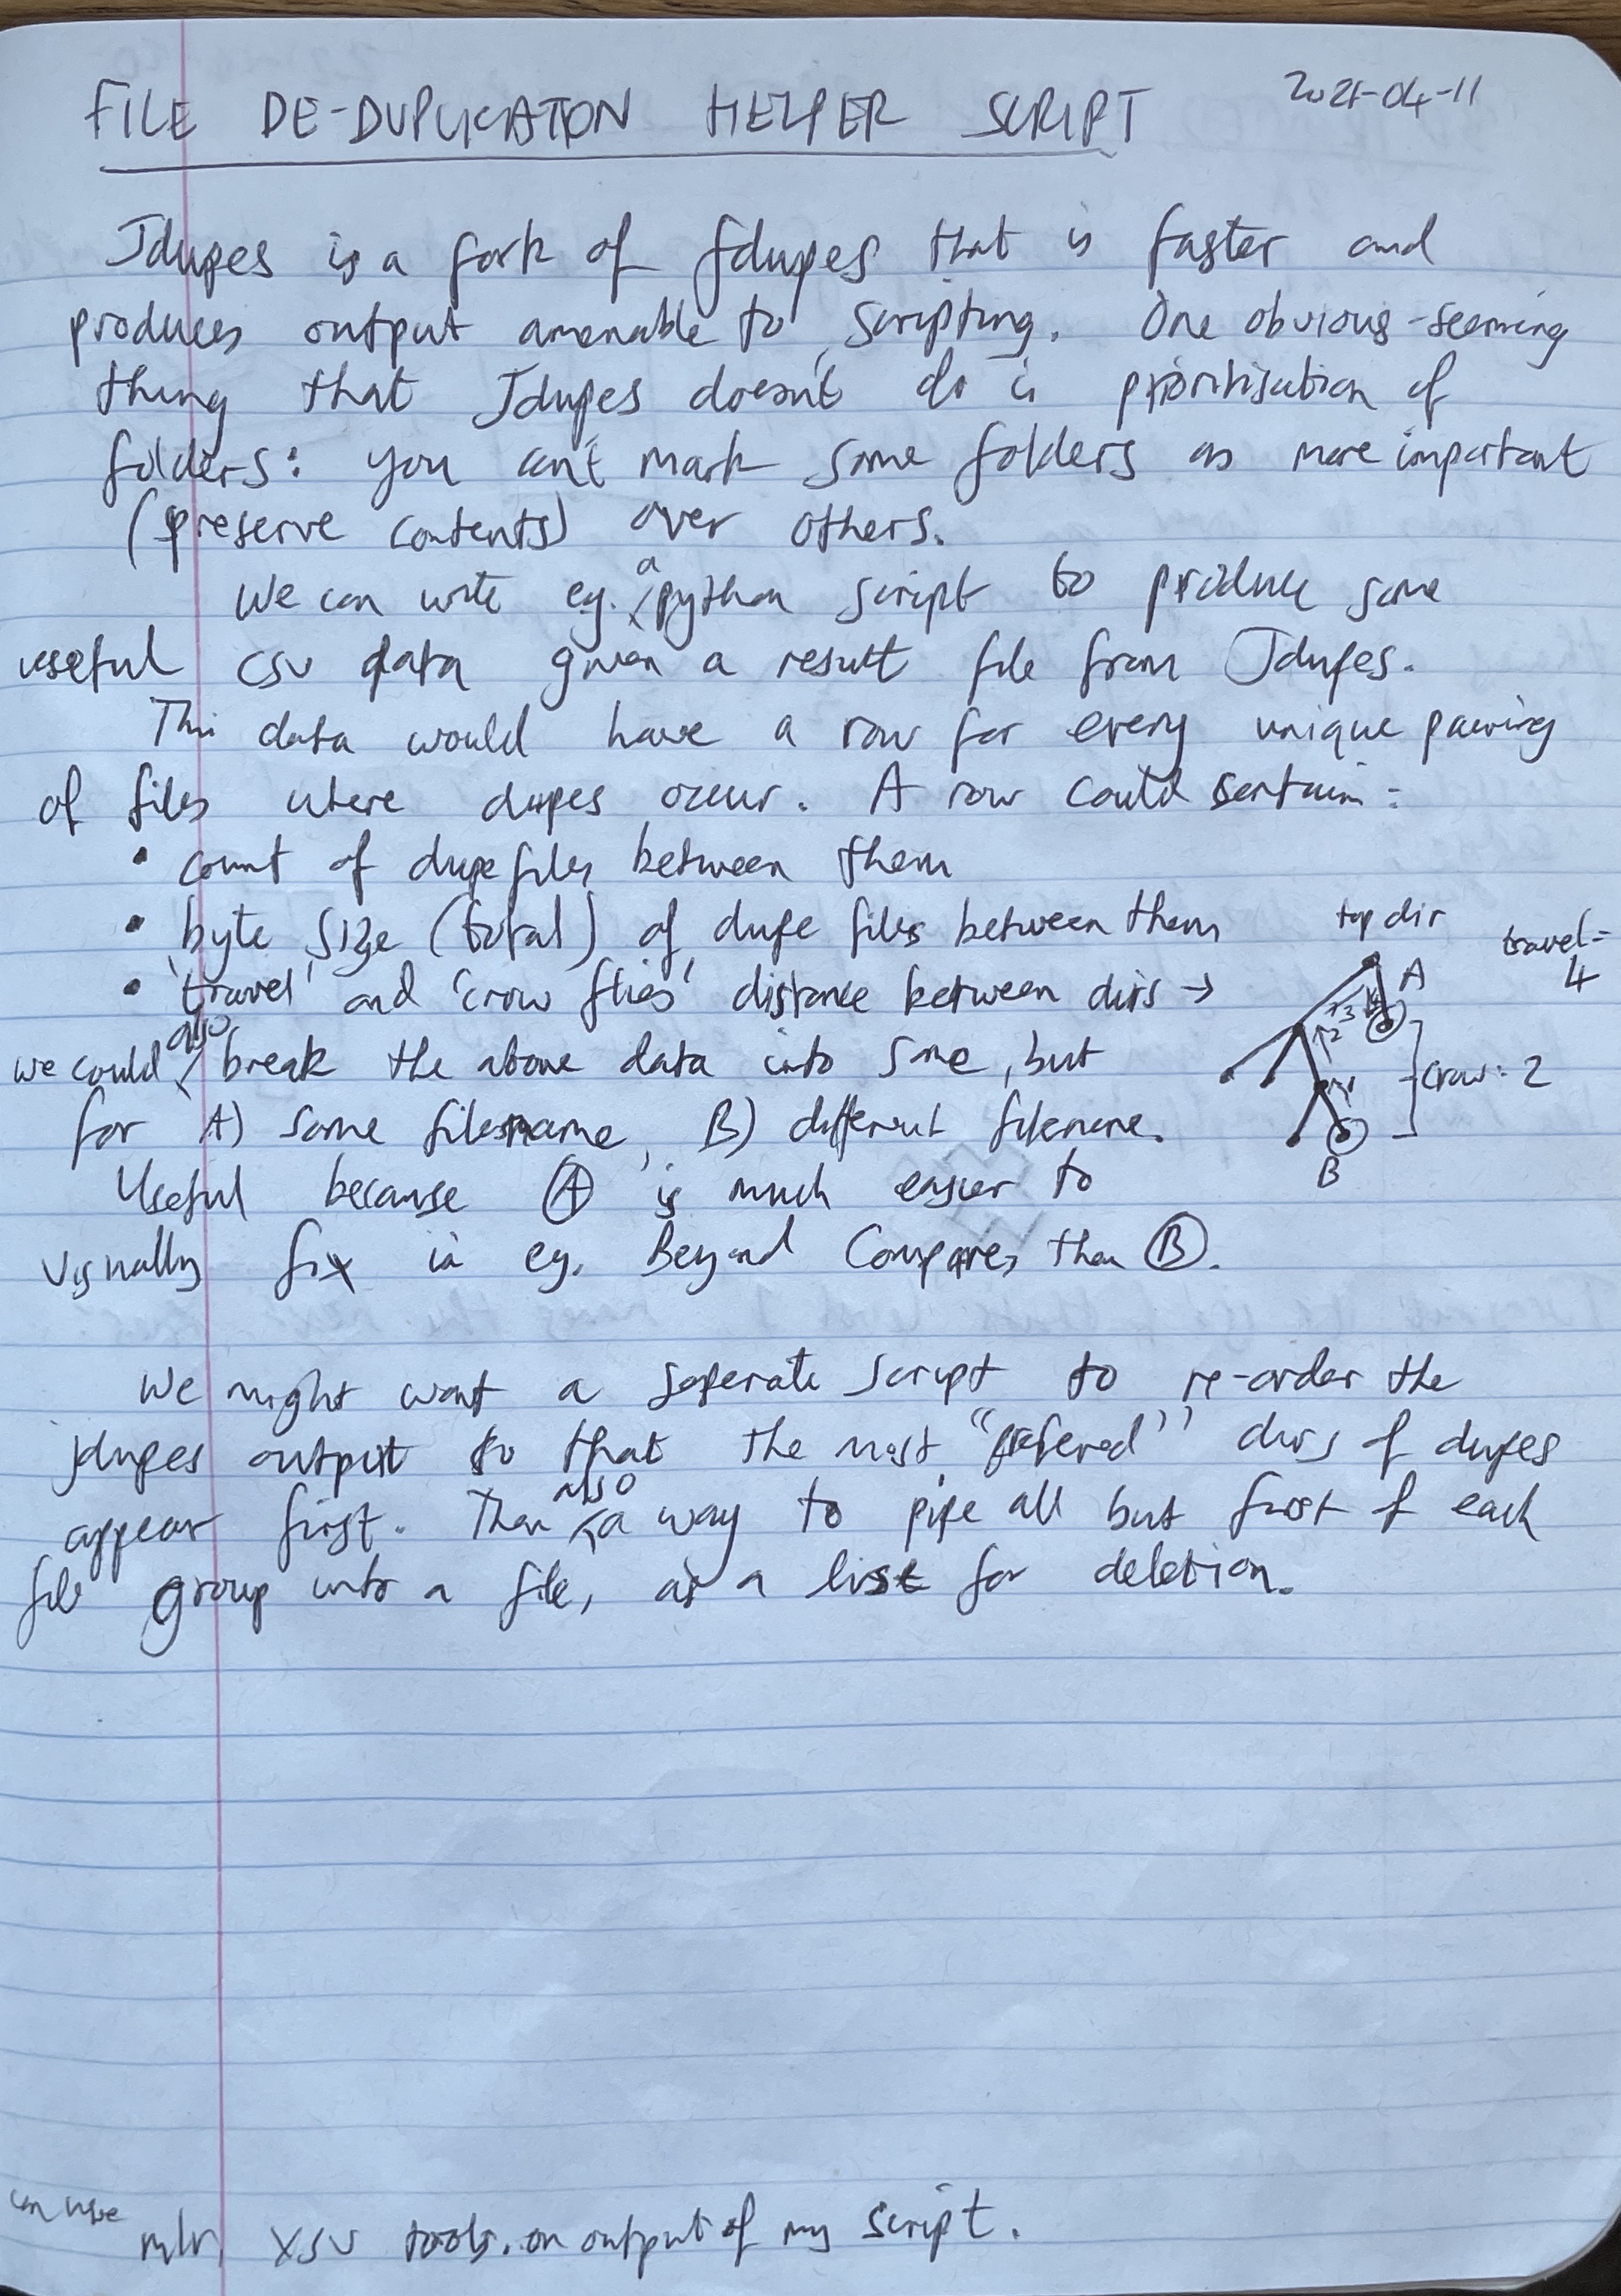 FILE DE-DUPLICATION HELPER SCRIPT
2021-04-11
Jdupes is a fork of fdupes that is faster and
produces output amenable to scripting. One obvious-seeming
thing that Jdupes doesn't do is prioritisation of
folders: you can't mark some folders as more important
(preserve contents) over others.
We can write eg. a python script to produce some
useful csv data given a result file from Jdupes.
This data would have a row for every unique pairing
of files where dupes occur. A row could contain:
• count of dupe files between them
• byte size (total) of dupe files between them
• 'travel' and 'crow flies' distance between dirs →
top dir
travel=
4
A
1
2
3
4
crow: 2
B
we could also break the above data into same, but
for A) same filename, B) different filename.
Useful because A is much easier to
visually fix in eg. Beyond Compare, than B.
We might want a seperate script to re-order the
jdupes output so that the most "prefered" dirs of dupes
appear first. Then also a way to pipe all but first of each
file group into a file, as a list for deletion.
can use
mlr, xsv tools. on output of my script.